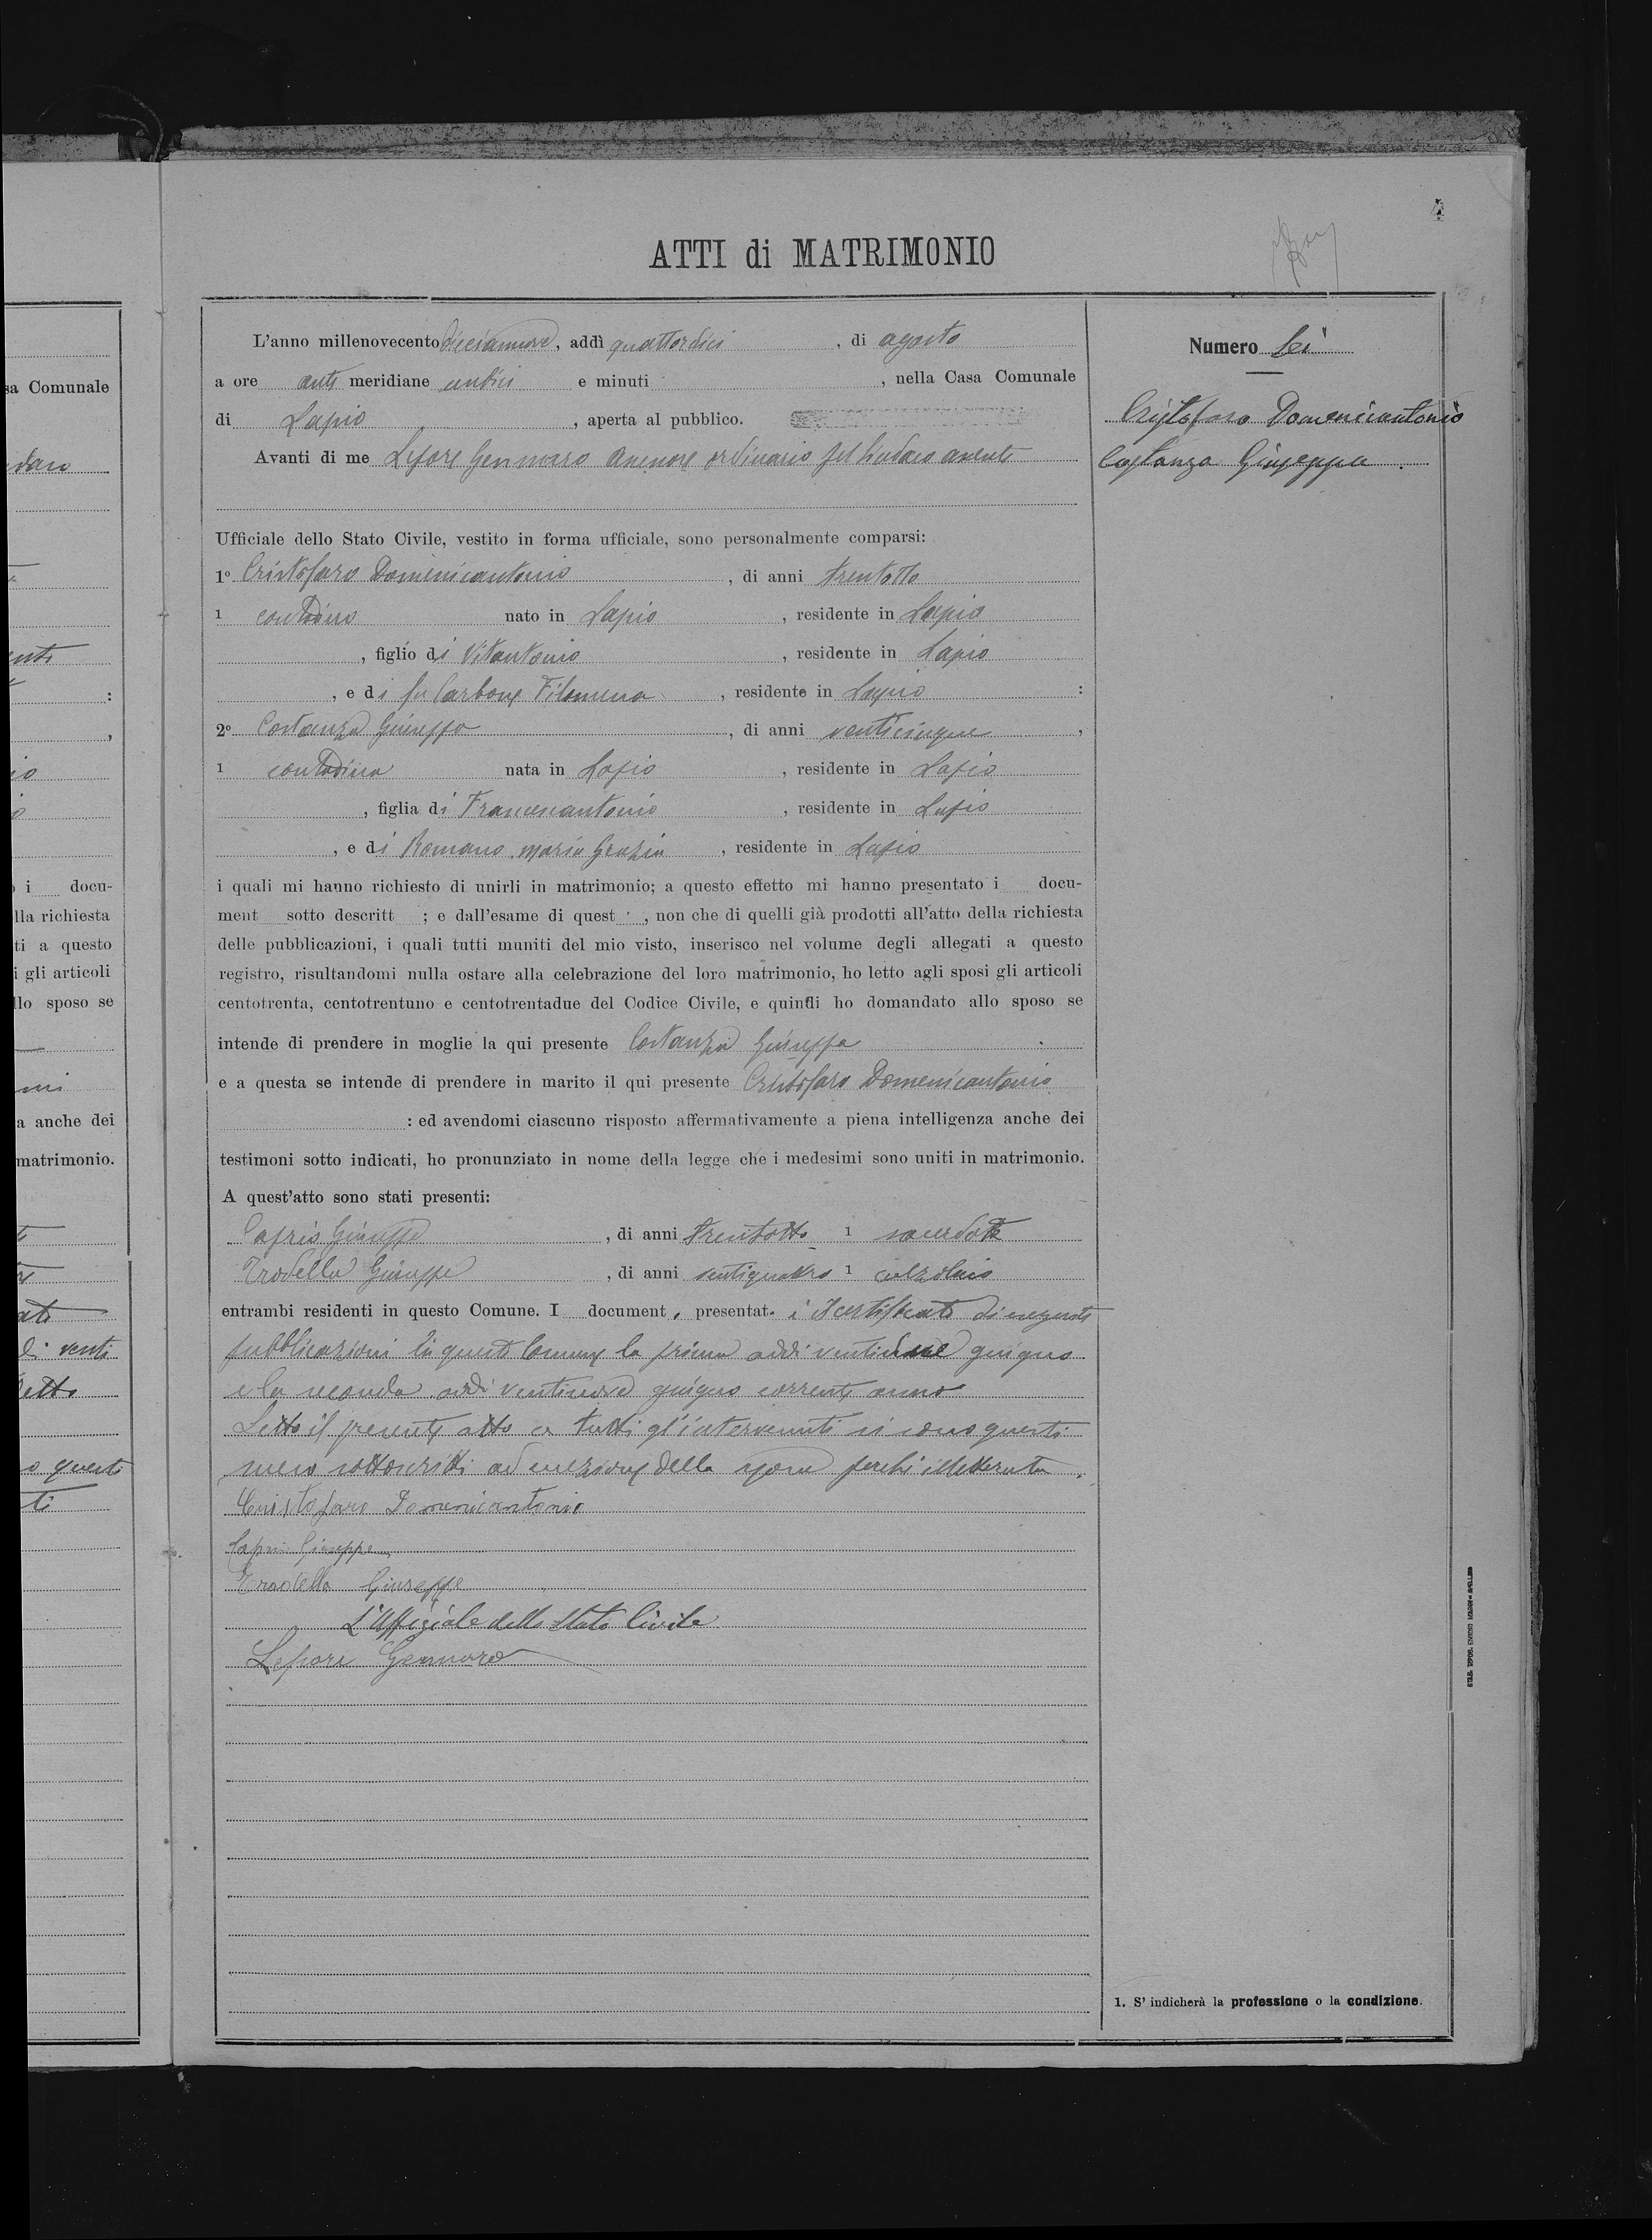 4
ATTI di MATRIMONIO
L'anno millenovecento dieciannove, addì quattordici, di agosto
a ore anti meridiane undici e minuti, nella Casa Comunale
di Lapio, aperta al pubblico.
Avanti di me Lepore Gennaro Assessore ordinario pel Sindaco assente
Ufficiale dello Stato Civile, vestito in forma ufficiale, sono personalmente comparsi:
1º Cristofaro Domenicantonio, di anni trentotto
1 contadino nato in Lapio, residente in Lapio
, figlio di Vitantonio, residente in Lapio
, e di fu Carbone Filomena, residente in Lapio :
2º Costanza Giuseppa, di anni venticinque,
1 contadina nata in Lapio, residente in Lapio
, figlia di Francescantonio, residente in Lapio
, e di Romano Maria Grazia, residente in Lapio
i quali mi hanno richiesto di unirli in matrimonio; a questo effetto mi hanno presentato i docu-
ment sotto descritt ; e dall'esame di quest , non che di quelli già prodotti all'atto della richiesta
delle pubblicazioni, i quali tutti muniti del mio visto, inserisco nel volume degli allegati a questo
registro, risultandomi nulla ostare alla celebrazione del loro matrimonio, ho letto agli sposi gli articoli
centotrenta, centotrentuno e centotrentadue del Codice Civile, e quindi ho domandato allo sposo se
intende di prendere in moglie la qui presente Costanza Giuseppa
e a questa se intende di prendere in marito il qui presente Cristofaro Domenicantonio
: ed avendomi ciascuno risposto affermativamente a piena intelligenza anche dei
testimoni sotto indicati, ho pronunziato in nome della legge che i medesimi sono uniti in matrimonio.
A quest'atto sono stati presenti:
Caprio Giuseppe, di anni trentotto 1 sacerdote
Trodella Giuseppe, di anni ventiquattro 1 calzolaio
entrambi residenti in questo Comune. I document presentat i il certificato di eseguite
pubblicazioni in questo Comune la prima addì ventidue giugno
e la seconda addì ventinove giugno corrente anno
Letto il presente atto a tutti gl'intervenuti si sono questi
meco sottoscritti ad eccezione della sposa perchè illetterata.
Cristofaro Domenicantonio
Caprio Giuseppe
Trodella Giuseppe
L'Uffiziale dello Stato Civile
Lepore Gennaro
Numero Sei
Cristofaro Domenicantonio
Costanza Giuseppa
1. S'indicherà la professione o la condizione.
sa Comunale
:
,
i docu-
lla richiesta
ti a questo
i gli articoli
llo sposo se
a anche dei
matrimonio.
di venti
o questi